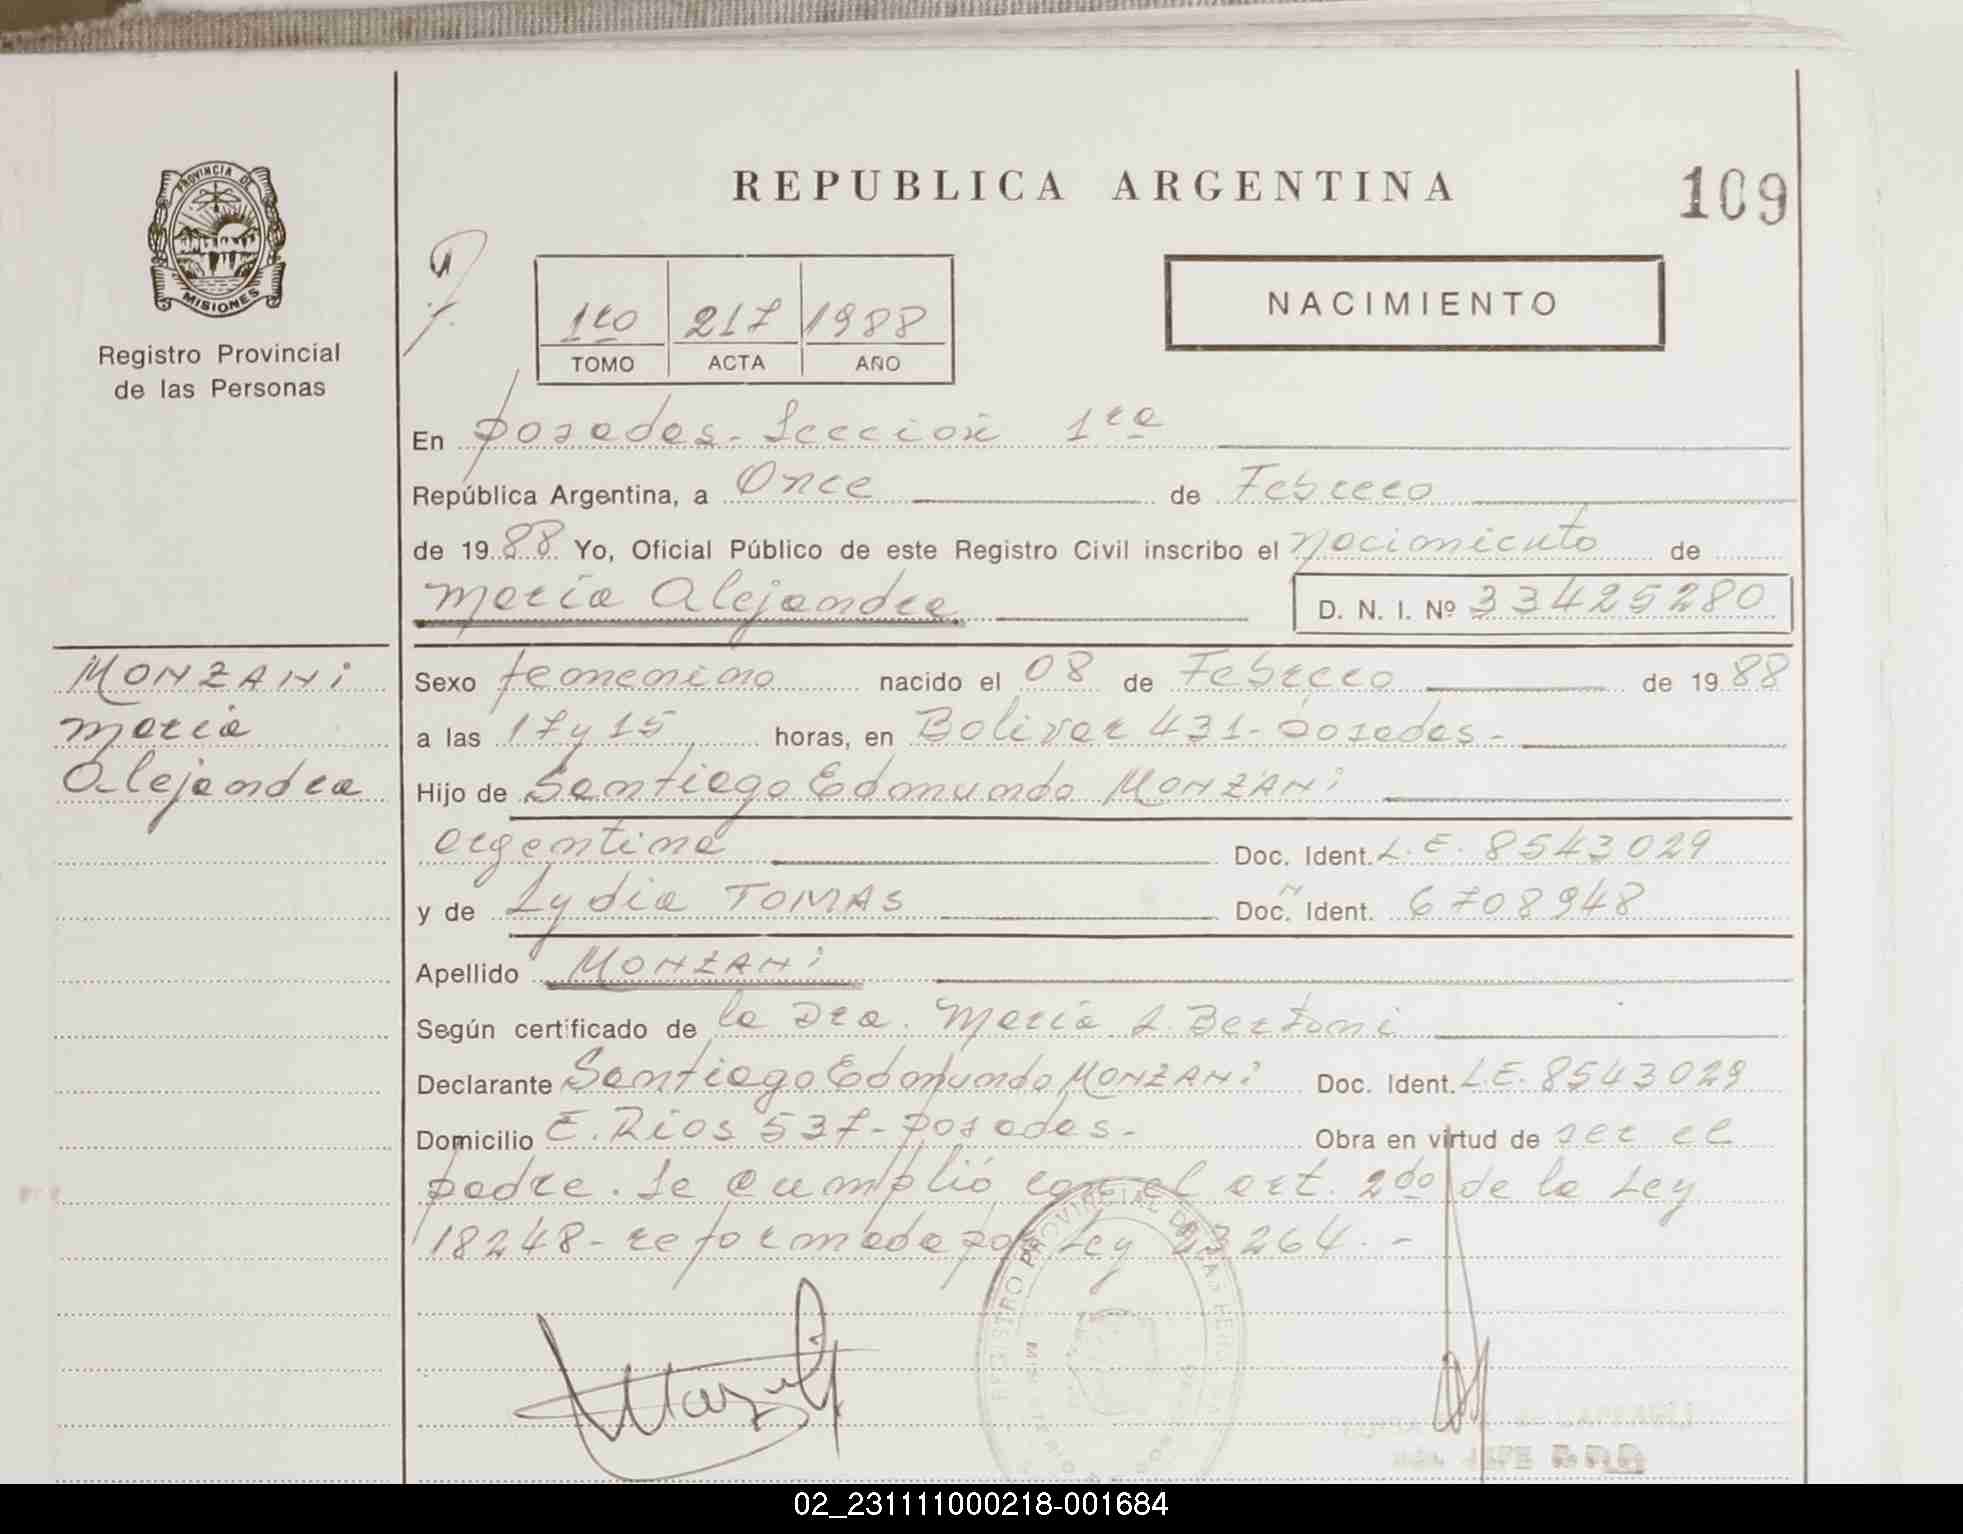 PROVINCIA DE
MISIONES
Registro Provincial
de las Personas
REPUBLICA ARGENTINA
109
1ro 217 1988
TOMO ACTA AÑO
NACIMIENTO
En posadas - Sección 1ra
República Argentina, a Once de Febrero
de 1988 Yo, Oficial Público de este Registro Civil inscribo el nacimiento de
María Alejandra D. N. I. Nº 33425280
MONZANi
María
Alejandra
Sexo femenino nacido el 08 de Febrero de 1988
a las 17 y 15 horas, en Bolivar 431 - posadas -
Hijo de Santiago Edmundo MONZANi
argentina Doc. Ident. L.E. 8543029
y de Lydia TOMAS Doc. Ident. 6708948
Apellido MONZANi
Según certificado de la Dra. María L. Bertoni
Declarante Santiago Edmundo MONZANi Doc. Ident. L.E. 8543029
Domicilio E. Rios 537 - posadas - Obra en virtud de ser el
padre. Se cumplió con el art. 2do de la Ley
18248 - reformada por Ley 23264. -
REGISTRO PROVINCIAL DE LAS
02_231111000218-001684